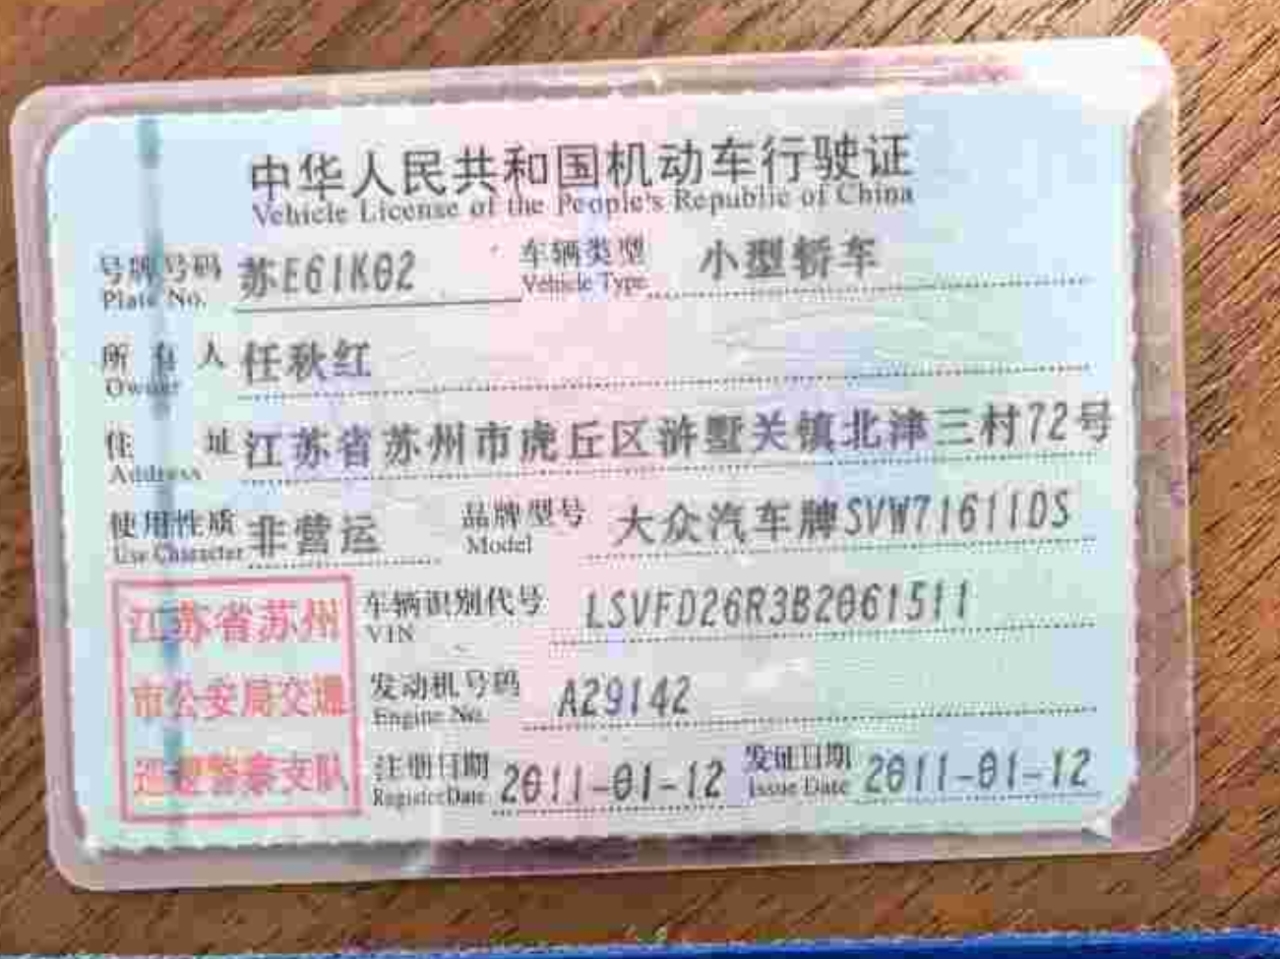 中华人民共和国机动车行驶证
Vehicle License of the People's Republic of China
号牌号码 苏E61K02 车辆类型 小型轿车
Plate No. Vehicle Type
所有人 任秋红
Owner
住址 江苏省苏州市虎丘区浒墅关镇北津三村72号
Address
使用性质 非营运 品牌型号 大众汽车牌SVW71611DS
Use Character Model
江苏省苏州 车辆识别代号 LSVFD26R3B2061511
VIN
市公安局交通 发动机号码 A29142
Engine No.
巡逻警察支队 注册日期 2011-01-12 发证日期 2011-01-12
Register Date Issue Date